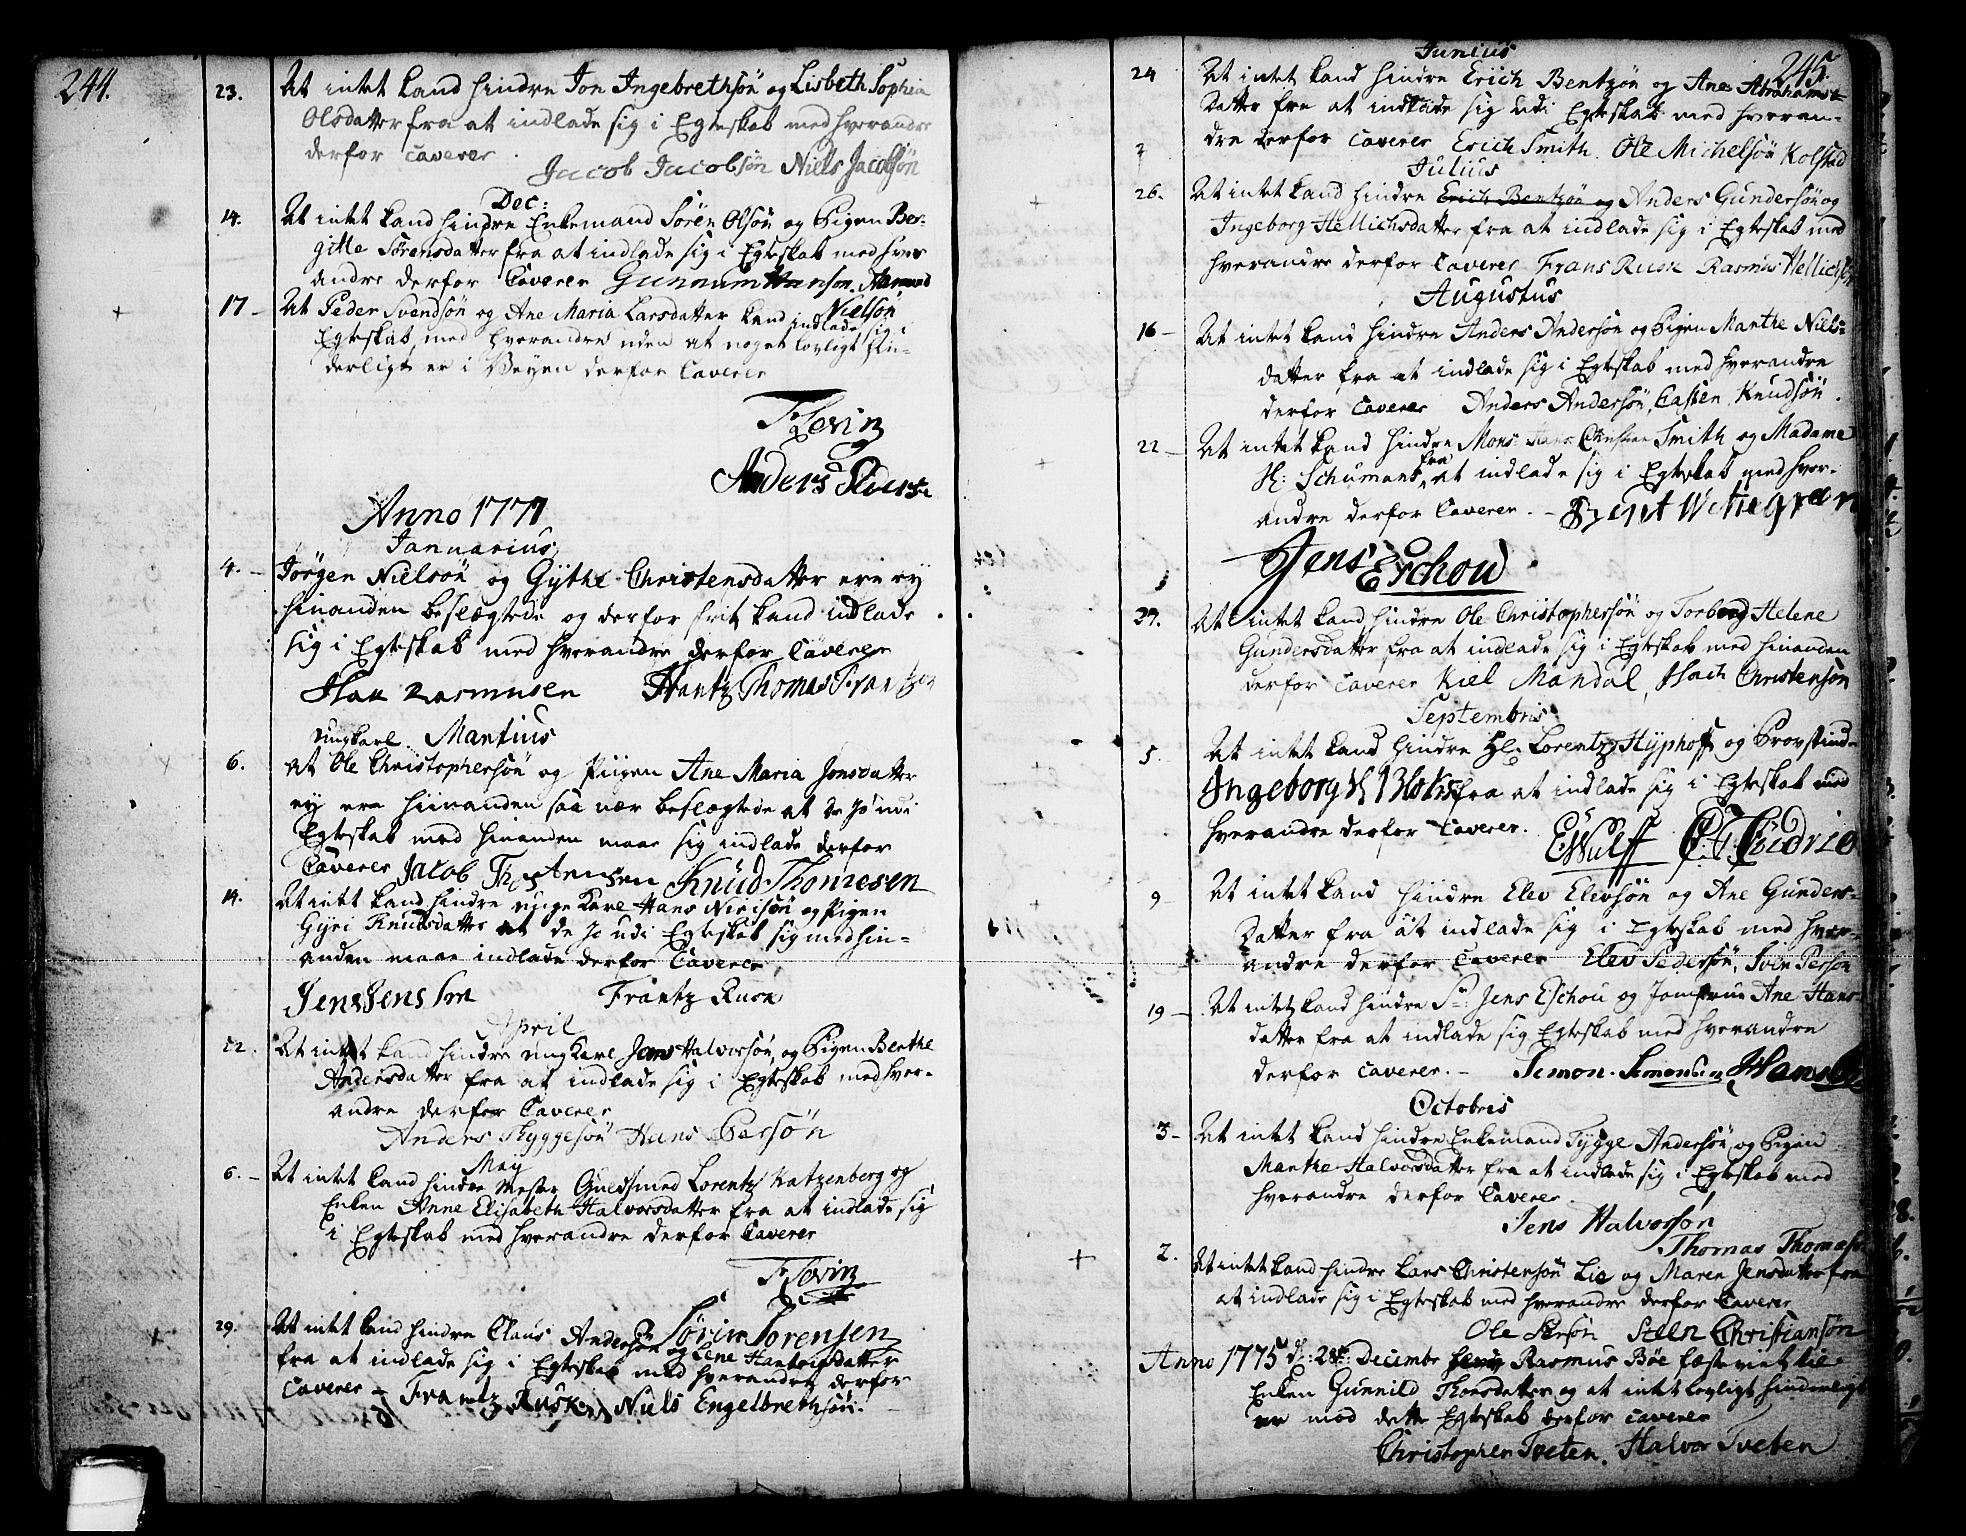 244.
23. At intet kand hindre Jon Ingebrethsön og Lisbeth Sophia
Olsdatter fra at indlade sig i Egteskab med hverandre
derfor Caverer
Jacob Jacobsön Niels Jacobsön
Dec:
14. At intet kand hindre Enkemand Sören Olsön og Pigen Ber-
gitte Sörensdatter fra at indlade sig i Egteskab med hver
andre derfor Caverer Gunnum Hanson. Aamund
Nielsön
17 - At Peder Svendsön og Ane Maria Larsdatter kand indlade sig i
Egteskab, med hverandre uden at noget lovligt hin-
derligt er i Veyen derfor Caverer
F Lovin
Anders
Anno 1771
Januarius
4. - Jörgen Nielsön og Gythe Christensdatter ere ey
hinanden beslægtede og derfor frit kand idlade
sig i Egteskab med hverandre derfor Caverer
Rasmusen Hantz Thomas Frantzen
ungkarl Martius
6. At Ole Christophersön og Piigen Ane Maria Jonsdatter
ey ere hiinanden saa nær beslægtede at de jo udi
Egteskab med hinanden maae sig indlade derfor
Caverer Jacob Thostensen Knud Thomesen
14. At intet kand hindre unge Karl Hans Nielsön og Pigen
Gyri Knudsdatter at de jo udi Egteskab sig med hin-
anden maae indlade derfor Caverer
Jens Jensen Frantz Rusk
April
22. At intet kand hindre ung Karl Jens Halvorsön, og Pigen Berthe
Andersdatter fra at indlade sig i Egteskab med hver-
andre derfor Caverer
Anders Thyggesön Hans Persön
May
6. - At intet kand hindre Mester Guldsmed Lorentz Katzenberg og
Enken Anne Elisabeth Halvorsdatter fra at indlade sig
i Egteskab med hverandre derfor Caverer
F Lovin
Sörin Sorensen
29. At intet kand hindre Claus Andersön og Lene Hantrigsdatter
fra at indlade sig i Egteskab med hverandre derfor
Caverer - Frantz Rusk, Niels Engelbrethsön.
245.
Junius
24 At intet kand hindre Erich Bentzön og Ane Abrahams-
Datter fra at indlade sig udi Egteskab med hveran-
dre derfor Caverer Erich Smith. Ole Michelsön Kolstad
Julius
26. At intet kand hindre Erich Bentzön og Anders Gundersön og
Ingeborg Hellichsdatter fra at indlade sig i Egteskab med
hverandre derfor Caverer Frans Rusk Rasmus Hellichsen
Augustus
16 - At intet kand hindre Anders Andersön og Pigen Marthe Niels-
datter fra at indlade sig i Egteskab med hverandre
derfor Caverer Anders Andersön, Casten Knudsön.
22 - At intet kand hindre Mons: Hans Christian Smith og Madame
Sl: Schumans fra at indlade sig i Egteskab med hver-
andre derfor Caverer. - Bent Wettegreen
Jens Eschou
27. At intet kand hindre Ole Christophersön og Torborg Helene
Gundersdatter fra at indlade sig i Egteskab med hinanden
derfor Caverer Kiel Mandal, Isach Christensön
Septembris
5. At intet kand hindre Hr: Lorentz Hyphoff og Provstinde
Ingeborg Sl Bloks fra at indlade sig i Egteskab med
hverandre derfor Caverer. E Wulff
9 At intet kand hindre Elev Elevsön og Ane Gunders-
Datter fra at indlade sig i Egteskab med hver-
andre derfor Caverer Elev Pedersön, Sven Persön
19 - At intet kand hindre Sr: Jens Eschou og Jomfrue Ane Hans
datter fra at indlade sig Egteskab med hverandre
derfor Caverer. - Simon Simonsen
Octobris
3 - At intet kand hindre Enkemand Tygge Andersön og Pigen
Marthe Halvorsdatter fra at indlade sig i Egteskab med
hverandre derfor Caverer.
Jens Halvorsön
Thomas Thomas
2. At intet kand hindre Lars Christensön Lie og Maren Jensdatter fra
at indlade sig i Egteskab med hverandre derfor Caverer
Ole Persön Steen Christiansön
Anno 1775 d: 28de: Decembr Rasmus Böe fæstemet til
Enken Gunnild Thorsdatter og at intet lovligt hinderligt
er mod dette Egteskab derfor Caverer
Christopher Tveten. Halvor Tveten